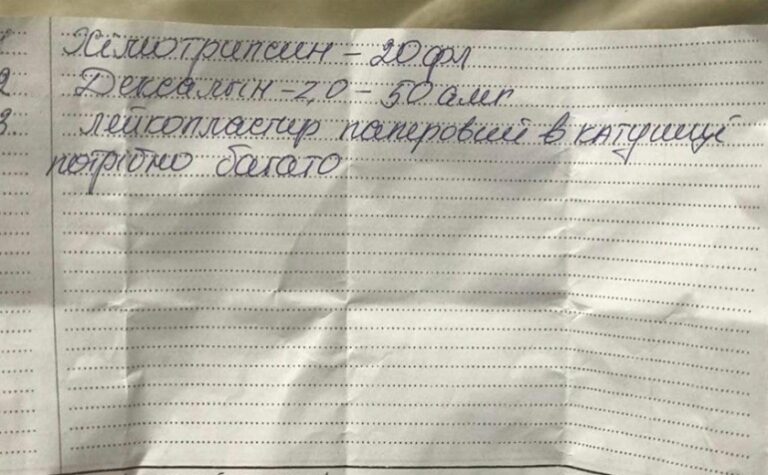 1 Хімотрипсин – 20 фл
2 Дексалын – 2,0 – 50 амп
3 лейкопластир паперовий в катушці
потрібно багато